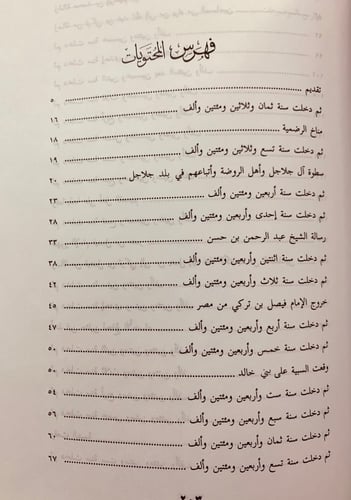 فهرس المحتويات
تقديم ٥
ثم دخلت سنة ثمان وثلاثين ومئتين وألف ١٦
مناخ الرضمية ١٨
ثم دخلت سنة تسع وثلاثين ومئتين وألف ١٩
سطوة آل جلاجل وأهل الروضة وأتباعهم في بلد جلاجل ٢٠
ثم دخلت سنة أربعين ومئتين وألف ٢٣
ثم دخلت سنة إحدى وأربعين ومئتين وألف ٢٨
رسالة الشيخ عبد الرحمن بن حسن ٣٣
ثم دخلت سنة اثنتين وأربعين ومئتين وألف ٣٨
ثم دخلت سنة ثلاث وأربعين ومئتين وألف ٤٢
خروج الإمام فيصل بن تركي من مصر ٤٥
ثم دخلت سنة أربع وأربعين ومئتين وألف ٤٧
ثم دخلت سنة خمس وأربعين ومئتين وألف ٥٠
وقعت السبية على بني خالد ٥٠
ثم دخلت سنة ست وأربعين ومئتين وألف ٥٤
ثم دخلت سنة سبع وأربعين ومئتين وألف ٥٦
ثم دخلت سنة ثمان وأربعين ومئتين وألف ٦٠
ثم دخلت سنة تسع وأربعين ومئتين وألف ٦٧
٢٠٣